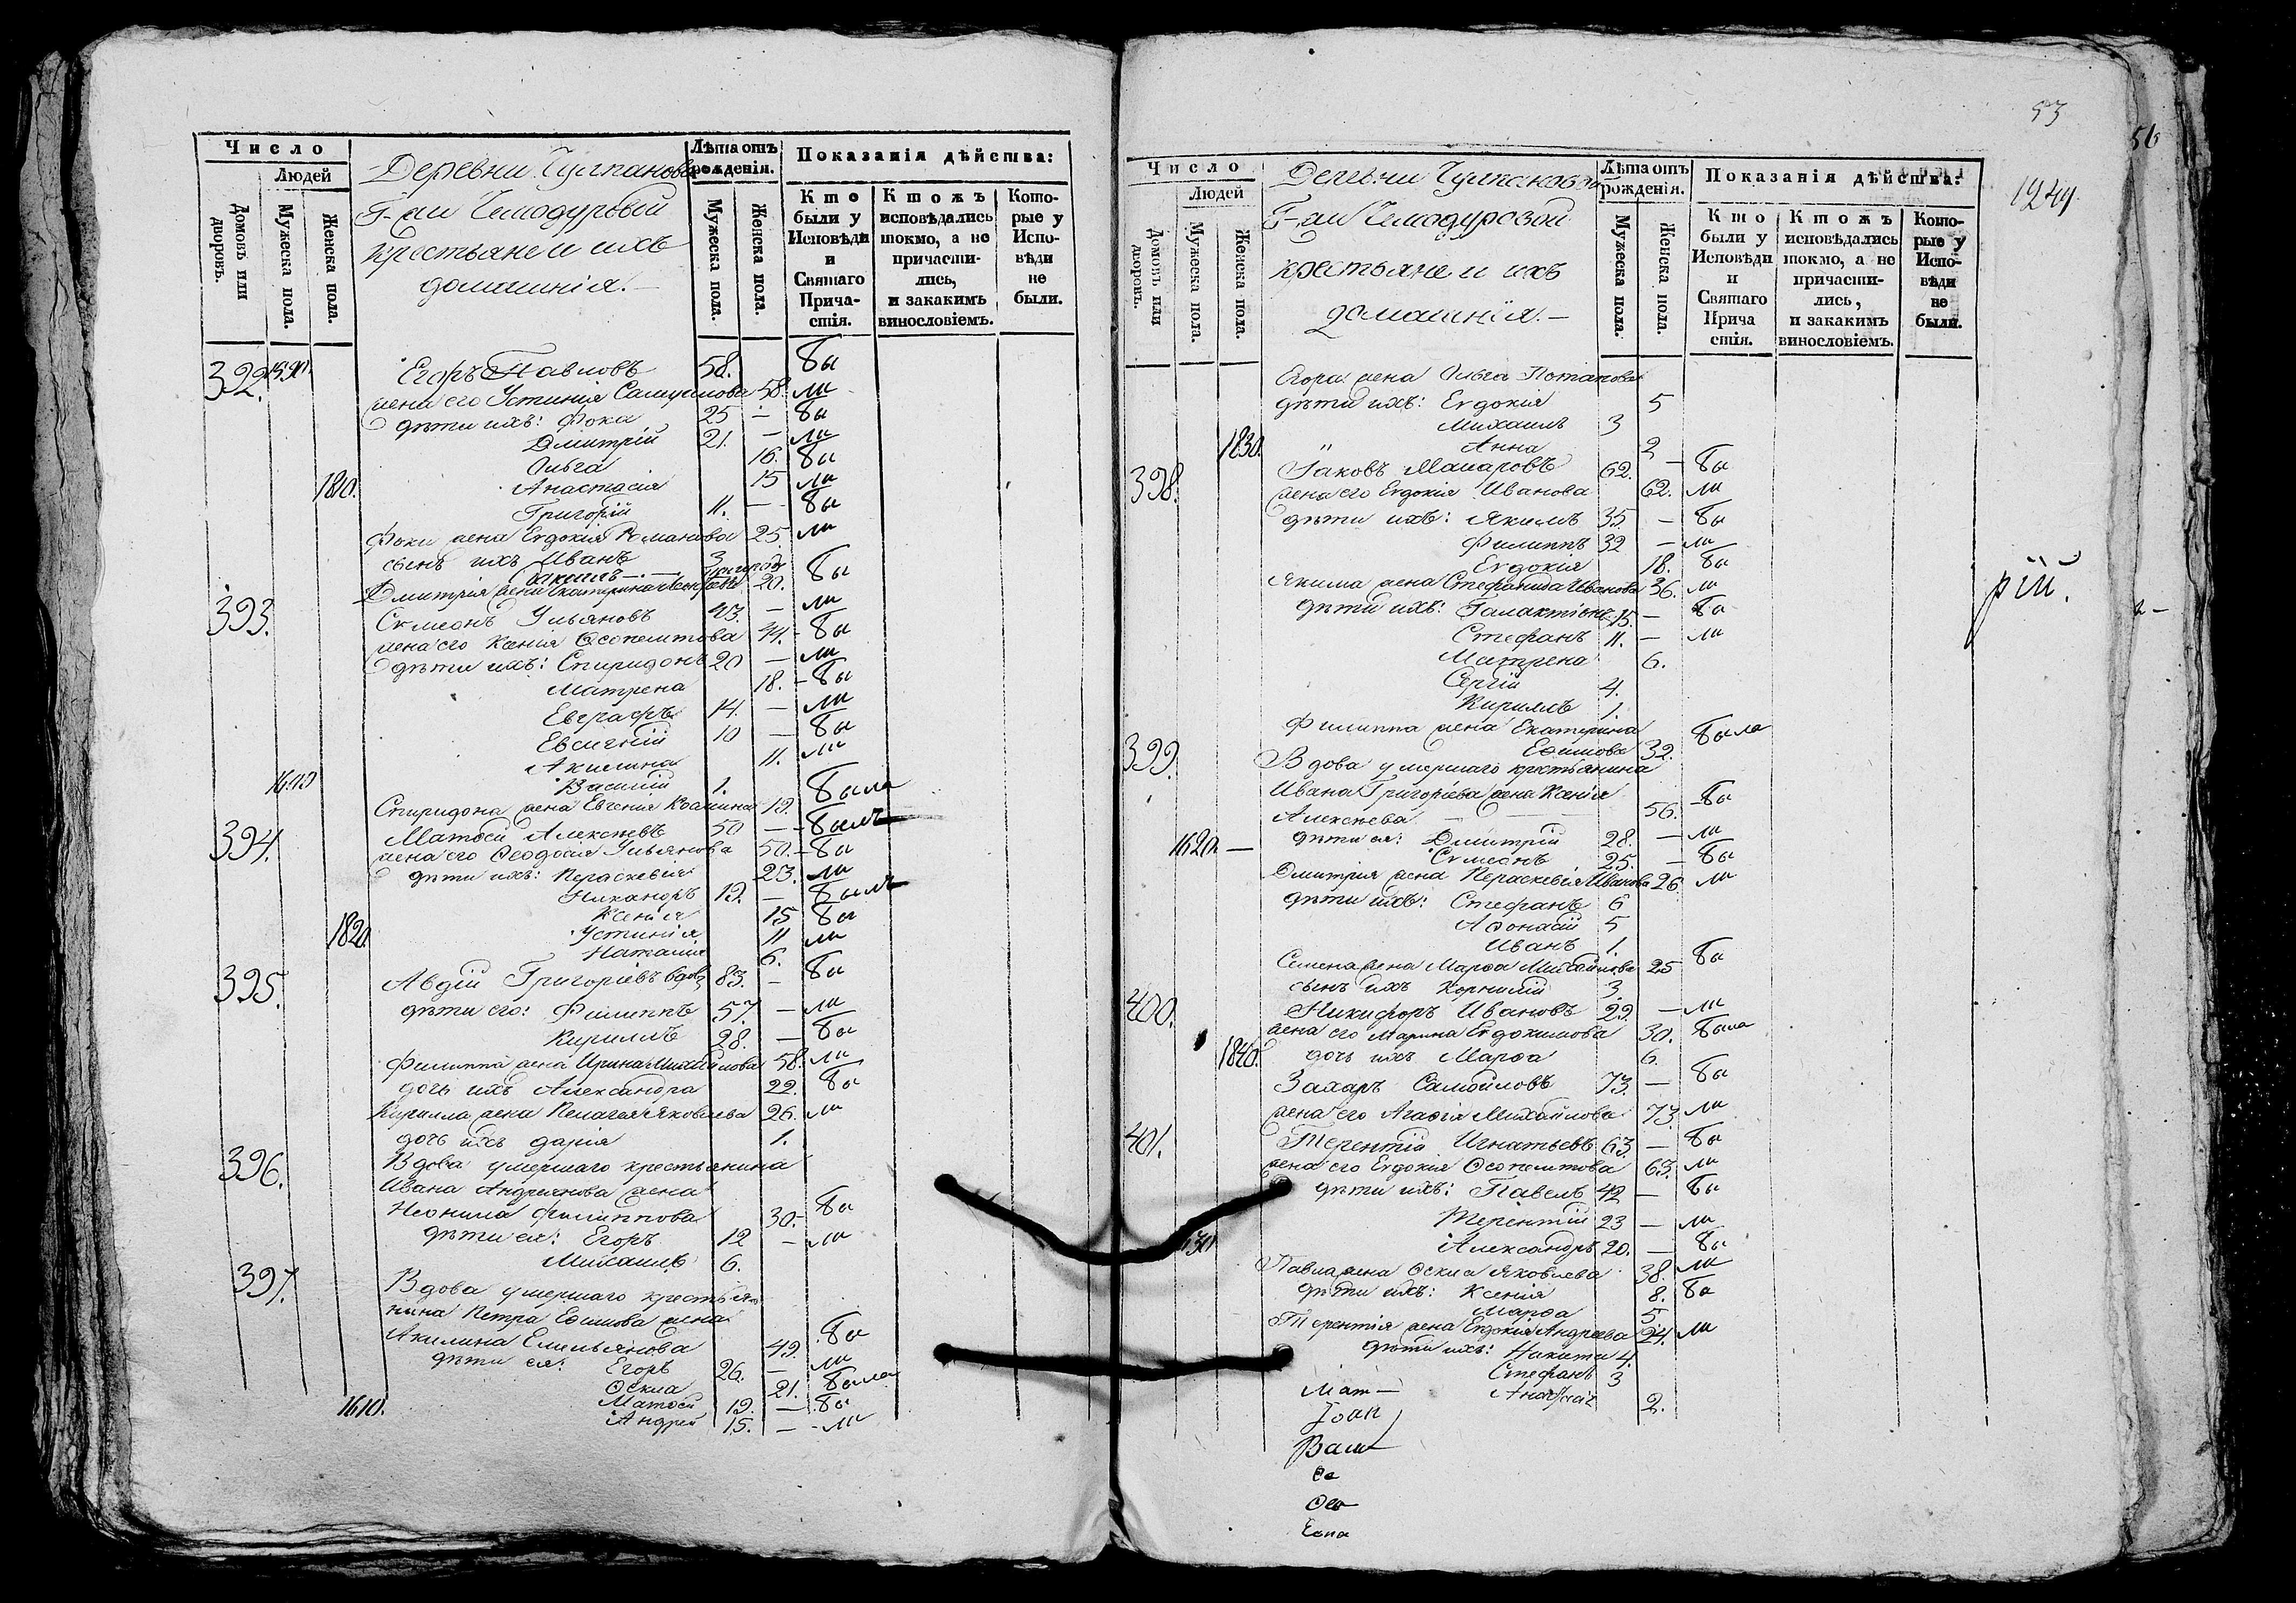 Число
Людей
Домовъ или дворовъ.
Мужеска пола.
Женска пола.
Деревни Чулпановой
Г-жи Чемодуровой
крестьяне и ихъ
домашнія.
Лѣта отъ рожденія.
Мужеска пола.
Женска пола.
Показанія дѣйства:
Кто были у Исповѣди и Святаго Прича-стія.
Ктожъ исповѣдались токмо, а не причасти-лись, и закакимъ винословіемъ.
Кото-рые у Испо-вѣди не были.
392. 1590. Егоръ Павловъ 58. бы
жена его Устинія Самуилова 58. ли
дѣти ихъ: Фока 25 — бы
Дмитрій 21. — ли
Ольга 16. бы
1810. Анастасія 15 ли
Григорій 11. — бы
Фоки жена Евдокія Романова 25 ли
сынъ ихъ Иванъ 3
Дмитрія жена Екатерина 20. бы
393. Сѵмеонъ Ульяновъ 43. — ли
жена его Ксенія Ѳеопемптова 44. бы
дѣти ихъ: Спиридонъ 20 — ли
Матрена 18. бы
Евграфъ 14. — ли
Евсигній 10 — бы
Акилина 11. ли
1600 Василій 1.
Спиридона жена Евгенія 19. была
394. Матѳей Алексѣевъ 50 — былъ
жена его Ѳеодосія Ульянова 50. бы
дѣти ихъ: Параскевія 23. ли
Никаноръ 19. — былъ
Ксенія 15 бы
1820. Устинія 11 ли
Наталія 6.
395. Авдій Григорьевъ вдовъ 83. — бы
дѣти его: Филиппъ 57. — ли
Кириллъ 28. — бы
Филиппа жена Ирина Михайлова 58. ли
дочь ихъ Александра 22. бы
Кирилла жена Пелагея Яковлева 26. ли
дочь ихъ Дарія 1.
396. Вдова умершаго крестьянина
Ивана Андреянова жена
Неонила Филиппова 30. бы
дѣти ея: Егоръ 12 — ли
Михаилъ 6.
397. Вдова умершаго крестья-
нина Петра Еѳимова жена
Акилина Емельянова 49. бы
дѣти ея: Егоръ 26. — ли
Ѳекла 21. была
Матѳей 19. — бы
1610. Андрей 15. — ли
53
56
1249
Число
Людей
Домовъ или дворовъ.
Мужеска пола.
Женска пола.
Деревни Чулпановой
Г-жи Чемодуровой
крестьяне и ихъ
домашнія.
Лѣта отъ рожденія.
Мужеска пола.
Женска пола.
Показанія дѣйства:
Кто были у Исповѣди и Святаго Прича стія.
Ктожъ исповѣдались токмо, а не причасти-лись, и закакимъ винословіемъ.
Кото-рые у Испо-вѣди не были.
Егора жена Ольга Потапова
дѣти ихъ: Евдокія 5
Михаилъ 3
1830. " Анна 2
398. Іаковъ Макаровъ 62. — бы
жена его Евдокія Иванова 62. ли
дѣти ихъ: Якимъ 35 — бы
Филиппъ 32 — ли
Евдокія 18. бы
Якима жена Стефанида Иванова 36. ли
дѣти ихъ: Галактіонъ 15. — бы
Стефанъ 11. — ли
Матрена 6.
Сергій 4.
Кириллъ 1.
Филиппа жена Екатерина
Еѳимова 32. была
399. Вдова умершаго крестьянина
Ивана Григорьева жена Ксенія
Алексѣева 56. бы
1620. — дѣти ея: Дмитрій 28. — ли
Сѵмеонъ 25. — бы
Дмитрія жена Параскевія Иванова 26 ли
дѣти ихъ: Стефанъ 6
Аѳонасій 5
Иванъ 1.
Семена жена Марѳа Михайлова 25 бы
сынъ ихъ Корнилій 3.
400. Никифоръ Ивановъ 29. — ли
жена его Марина Евдокимова 30. была
1840. дочь ихъ Марѳа 6.
Захаръ Самойловъ 73. — бы
жена его Агаѳія Михайлова 73 ли
401. Терентій Игнатьевъ 63. — бы
жена его Евдокія Ѳеопемптова 63. ли
дѣти ихъ: Павелъ 42 — бы
Терентій 23 — ли
1630 Александръ 20. — бы
Павла жена Ѳекла Яковлева 38. ли
дѣти ихъ: Ксенія 8. бы
Марѳа 5.
Терентія жена Евдокія Андреева 24. ли
дѣти ихъ: Никита 4.
Стефанъ 3
2.
рій.
Мат—
Іоан
Васи
Ѳе